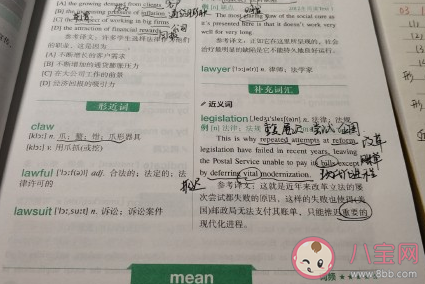 (A) the growing demand from clients
(B) the increasing pressure of inflation
(C) the prospect of working in big firms
(D) the attraction of financial rewards
参考译文：许多学生选择法律作为他们
的职业，这是因为
(A) 不断增长的客户需求
(B) 不断增加的通货膨胀压力
(C) 在大公司工作的前景
(D) 经济回报的吸引力
形近词
claw
[klɔː] n. 爪；螯；钳；爪形器具
[klɔː] v. 用爪抓(或挖)
lawful ['lɔːf(ə)l] adj. 合法的；法定的；法
律许可的
lawsuit ['lɔːsuːt] n. 诉讼；诉讼案件
The most glaring flaw of the social cure as
it's presented here is that it doesn't work very
well for very long.
参考译文：正如它在这里所呈现的，社会
治疗最明显的缺陷是它不能持久地良好运行。
lawyer ['lɔːjə(r)] n. 律师；法学家
补充词汇
近义词
legislation [ˌledʒɪs'leɪʃ(ə)n] n. 法律；法规
例 [n] 法律；法规
This is why repeated attempts at reform
legislation have failed in recent years, leaving
the Postal Service unable to pay its bills except
by deferring vital modernization.
参考译文：这就是近年来改革立法的屡
次尝试都失败的原因，这样的失败也使得(美
国)邮政局无法支付其账单，只能推迟重要的
现代化进程。
改革
账单
推迟
mean
词频
八宝网
www.8bb.com